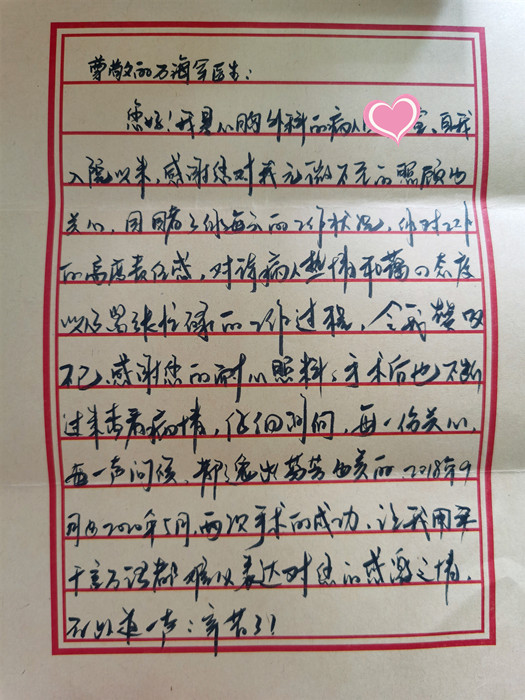 尊敬的万海军医生：
您好！我是心胸外科的病人宝，自我
入院以来，感谢您对我无微不至的照顾与
关心，目睹了你每天的工作状况，你对工作
的高度责任感，对诸病人热情和蔼的态度
以及紧张忙碌的工作过程，令我赞叹
不已，感谢您的耐心照料；手术后也不断
过来查看病情，仔细询问，每一份关心，
每一声问候，都
2018年9
月与2020年5月两次手术的成功，让我用千
言万语都难以表达对您的感激之情，
在此道一声：辛苦了！